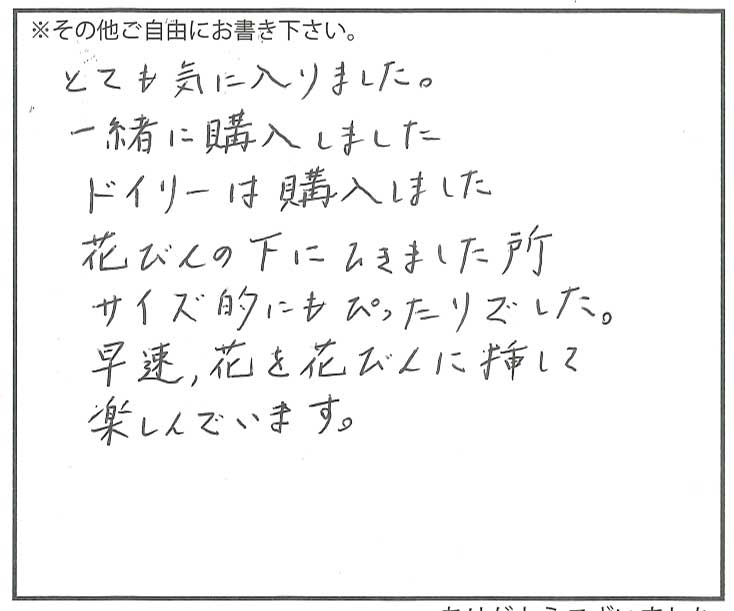 ※その他ご自由にお書き下さい。
とても気に入りました。
一緒に購入しました
ドイリーは購入しました
花びんの下にひきました所
サイズ的にもぴったりでした。
早速,花を花びんに挿して
楽しんでいます。